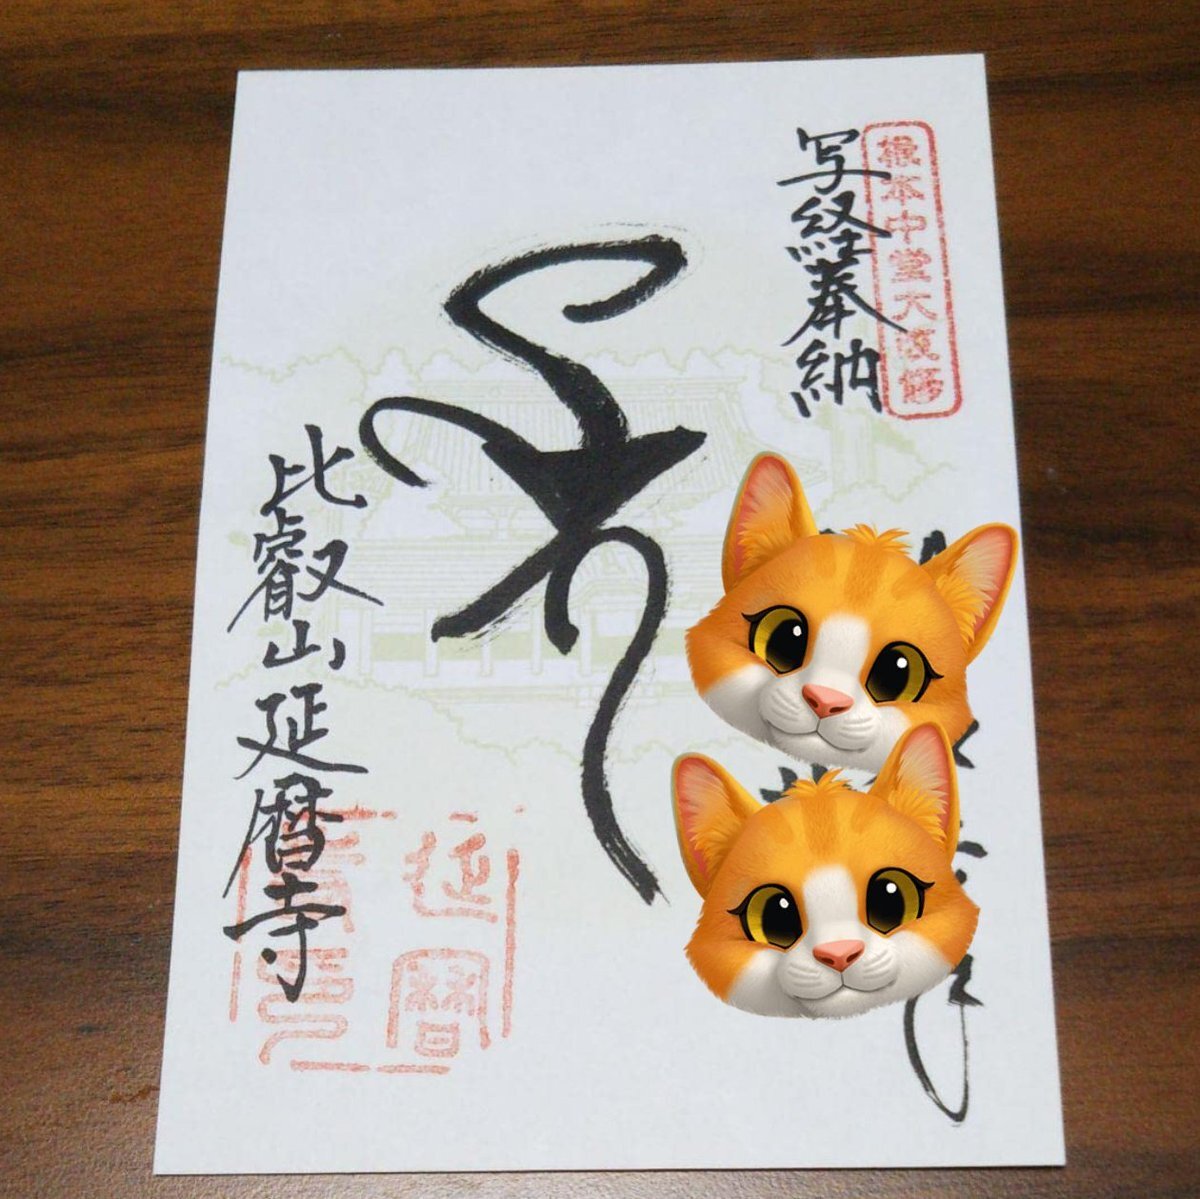 根本中堂大改修
写経奉納
比叡山延暦寺
延暦
寺印